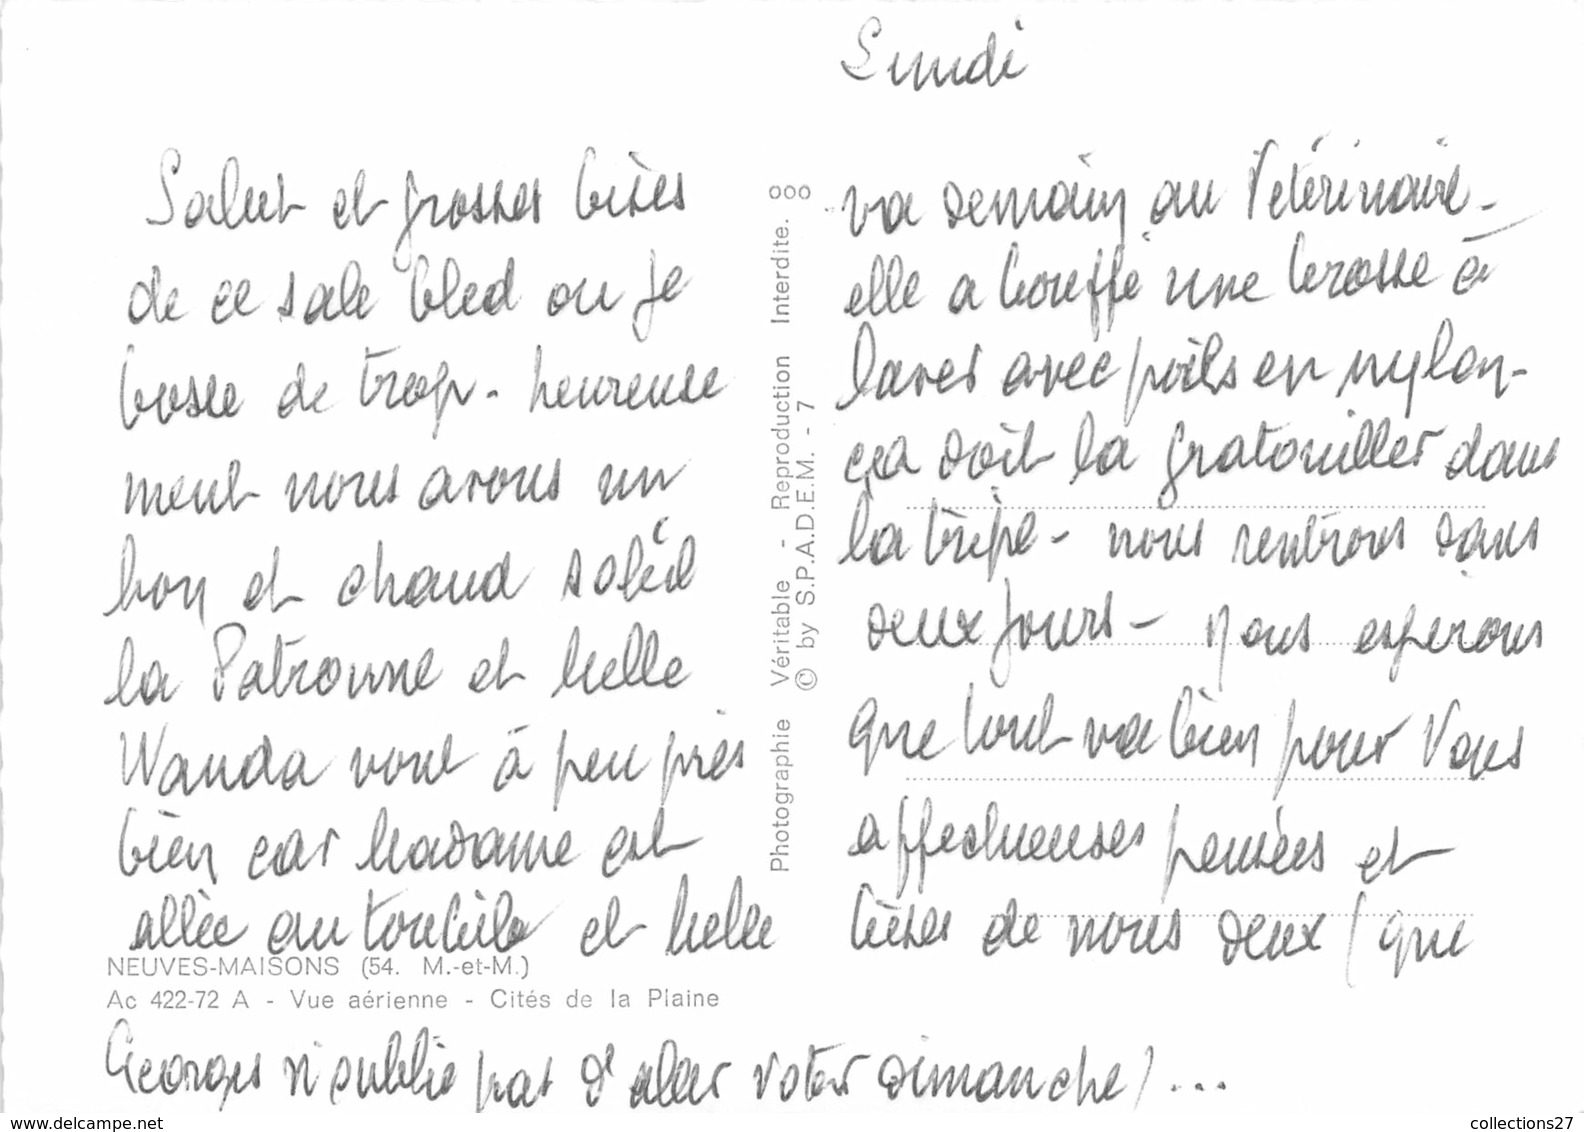 Lundi
Salut et grosses bises
de ce sale bled ou je
bosse de trop - heureuse
ment nous avons un
bon et chaud soleil
la Patronne et Melle
Wanda vont à peu près
bien car Madame est
allée au toubib et Melle
va demain au Vétérinaire -
elle a bouffé une brosse à
laver avec poils en nylon -
ça doit la gratouiller dans
la tripe - nous rentrons dans
deux jours - Nous espérons
que tout va bien pour Vous
affectueuses pensées et
bises de nous deux (que
Georges n'oublie pas d'aller voter dimanche) ...
NEUVES-MAISONS (54. M.-et-M.)
Ac 422-72 A - Vue aérienne - Cités de la Plaine
Photographie Véritable - Reproduction Interdite. 000
© by S.P.A.D.E.M. - 7
www.delcampe.net
collections27